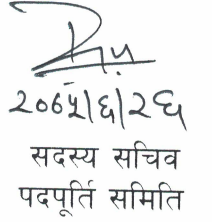 २०७५|६|२६
सदस्य सचिव
पदपूर्ति समिति